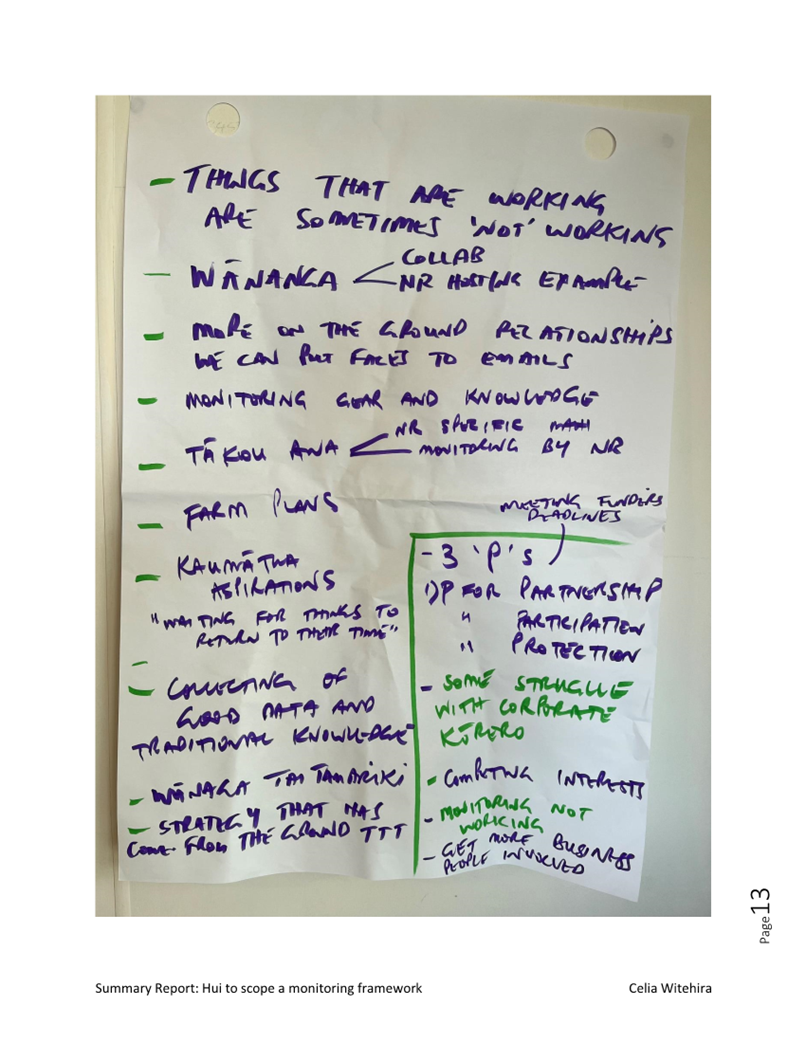 - THINGS THAT ARE WORKING
ARE SOMETIMES 'NOT' WORKING
- WĀNANGA < COLLAB
NR HOSTING EXAMPLE
- MORE ON THE GROUND RELATIONSHIPS
WE CAN PUT FACES TO EMAILS
- MONITORING GEAR AND KNOWLEDGE
- TĀKOU AWA < NR SPECIFIC
MONITORING BY NR
- FARM PLANS
- KAUMĀTUA
ASPIRATIONS
"WAITING FOR THINGS TO
RETURN TO THEIR TIME"
- COLLECTING OF
GOOD DATA AND
TRADITIONAL KNOWLEDGE
- WĀNAGA TAI TAMARIKI
- STRATEGY THAT HAS
COME FROM THE GROUND TTT
MEETING FUNDERS
DEADLINES
- 3 'P's
1) P FOR PARTNERSHIP
" PARTICIPATION
" PROTECTION
- SOME STRUGGLE
WITH CORPORATE
KŌRERO
- COMPETING INTERESTS
- MONITORING NOT
WORKING
- GET MORE BUSINESS
PEOPLE INVOLVED
Page13
Summary Report: Hui to scope a monitoring framework Celia Witehira